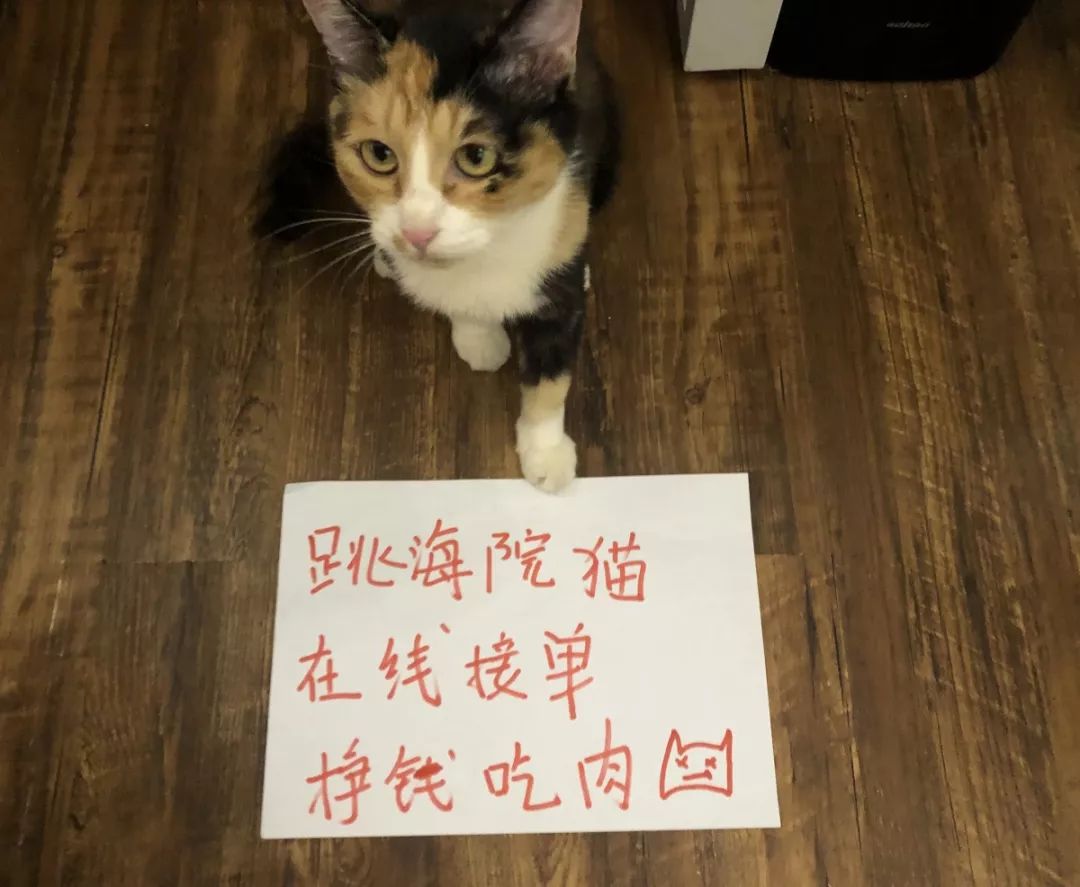 跳海院猫
在线接单
挣钱吃肉